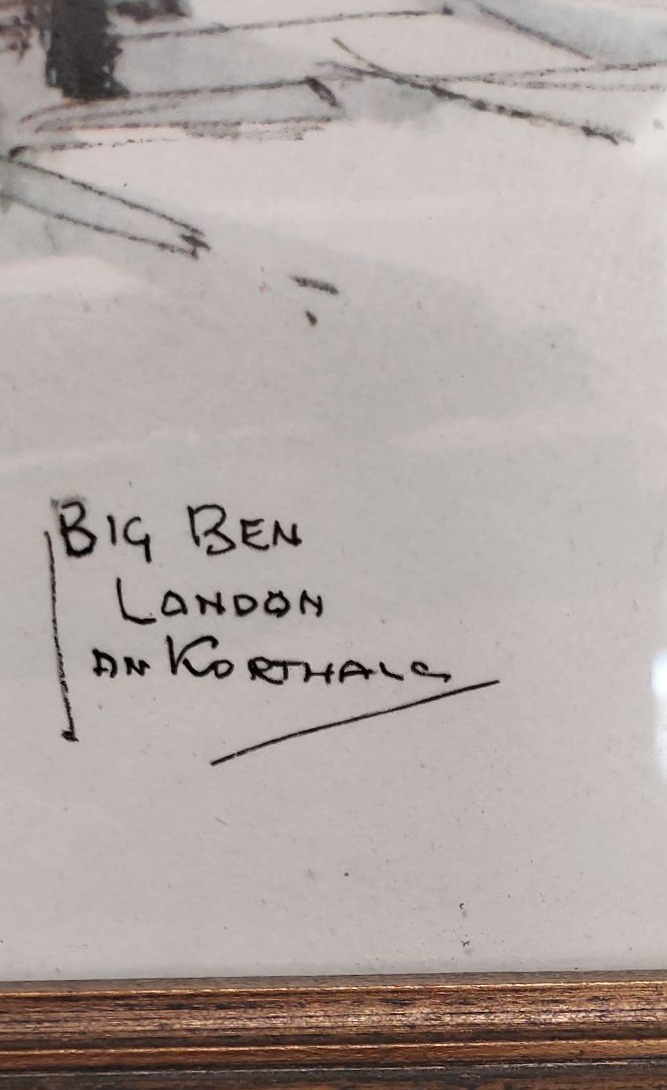 BIG BEN
LONDON
JAN KORTHALS